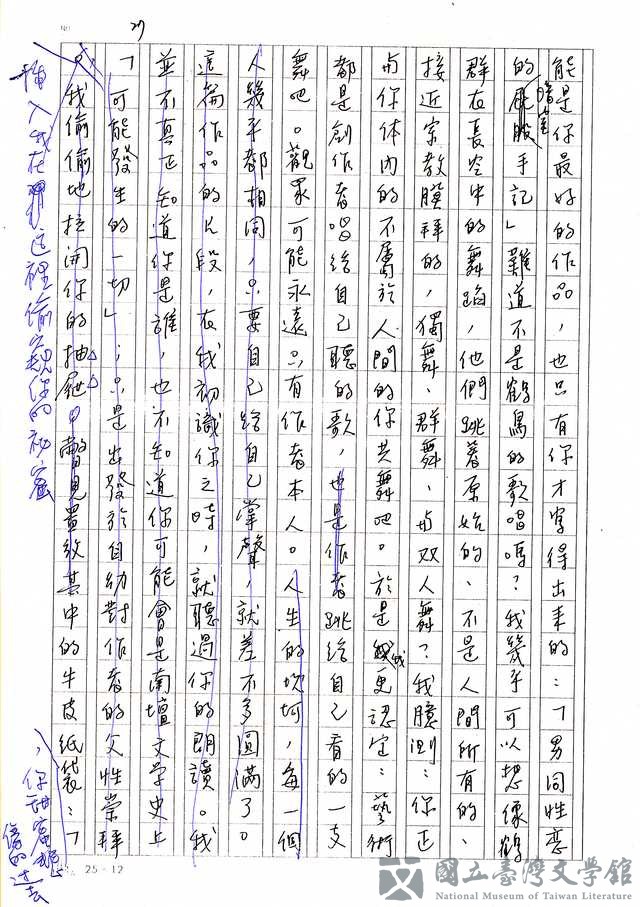 27
能是你最好的作品，也只有你才寫得出來的：「男同性戀
的暗室手記」難道不是鶴鳥的歌唱嗎？我幾乎可以想像鶴
群在長空中的舞蹈，他們跳著原始的、不是人間所有的、
接近宗教膜拜的，獨舞、群舞、與双人舞？我臆測：你正
與你体內的不屬於人間的你共舞吧。於是我更認定：藝術
都是創作者唱給自己聽的歌，也是作者跳給自己看的一支
舞吧。觀眾可能永遠只有作者本人。人生的坎坷，每一個
人幾乎都相同，只要自己給自己掌聲，就差不多圓滿了。
這篇作品的片段，在我初識你之時，就聽過你的朗讀。我
並不真正知道你是誰，也不知道你可能會是南壇文學史上
「可能發生的一切」；只是出發於自幼對作者的父性崇拜
。我偷偷地拉開你的抽屜，瞥見置放其中的牛皮紙袋：「
插入我在這裡偷窺你的祕密
，你甜蜜
傷的過去
25-12
國立臺灣文學館
National Museum of Taiwan Literature